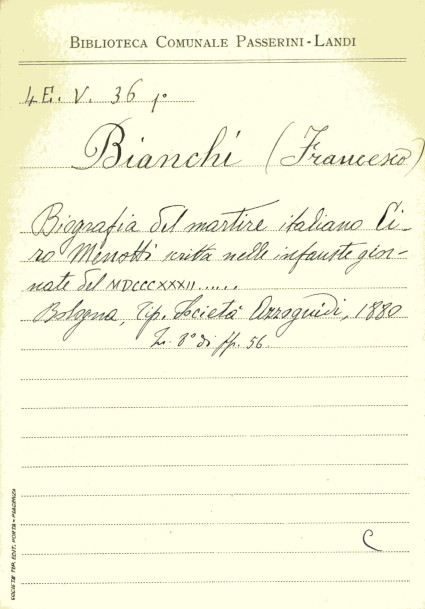 BIBLIOTECA COMUNALE PASSERINI-LANDI
4E. V. 36
Bianchi (Francesco)
Biografia del martire italiano Ci-
ro Menotti scritta nelle infauste gior-
nate del MDCCCXXXII......
Bologna, Tip. Società Azzoguidi, 1880
8° di pp. 56.
C
SOCIETÀ TIP. EDIT. PORTA - PIACENZA